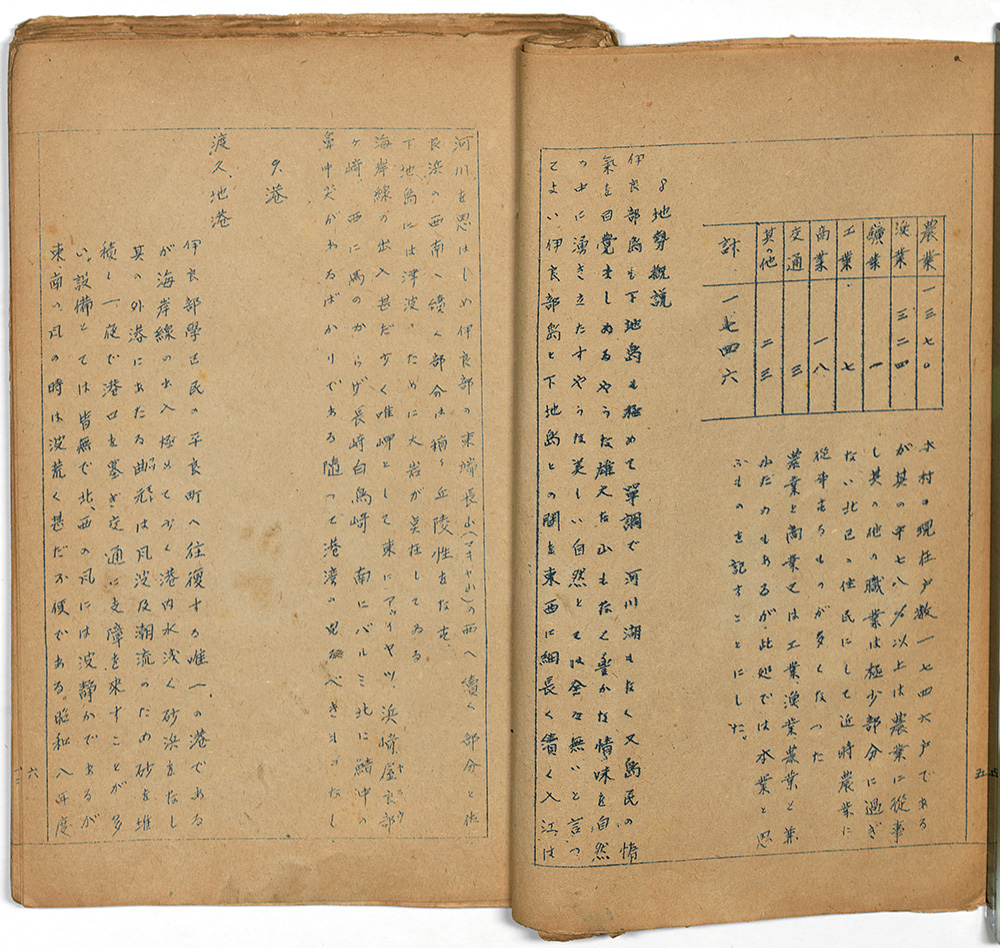 農業 一三七〇
漁業 三二四
鑛業 一
工業 七
商業 一八
交通 三
其ノ他 二三
計 一、七四六
本村ノ現在戸数一七四六戸である
が其の中七八%以上は農業に從事
し其の他の職業は極少部分に過ぎ
ない北区の住民にして近時農業に
從事するものが多くなつた
農業と商業又は工業漁業農業と兼
ねだのもあるが此処では本業と思
ふものを記すことにした。
8 地勢觀説
伊良部島も下地島も極めて單調で河川湖もなく又島民の情
氣を目覺ましめるやうな雄大な山もなく豊かな情味を自然
の中に湧き立たすやうな美しい自然とては全々無いと言つ
てよい伊良部島と下地島との間を東西に細長く續く入江は
五
河川を思はしめ伊良部の東端長山(ナキャ山)の西へ續く部分と佐
良浜の西南へ續く部分は稍々丘陵性をなす
下地島には津波のために大岩が点在してゐる
海岸線の出入甚だ少く唯岬として東にアガイヤツ、浜崎屋良部
ケ崎、西に馬のからげ長崎白鳥崎 南にバルミ北に鯖中の
鼻中だがわるばかりである随つて港湾の見るべきものなし
9. 港
渡久地港
伊良部學区民の平良町へ往復する唯一の港である
が海岸線の出入極めて少く港内水浅く砂浜をなし
其の外港にあたる曲 は風波及潮流のため砂を堆
積し一夜で港口を塞ぎ交通に支障を來すことが多
い。設備とては皆無で北、西の風には波静かであるが
東、南の風の時は波荒く甚だ不便である。昭和八年度
六